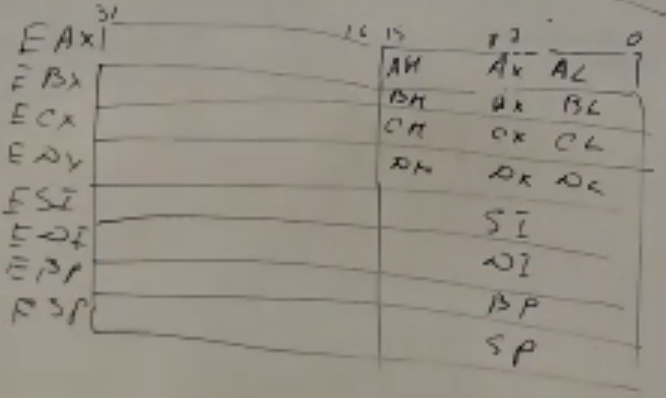 31 16 15 8 7 0
EAX AH AX AL
EBX BH BX BL
ECX CH CX CL
EDX DH DX DL
ESI SI
EDI DI
EBP BP
ESP SP